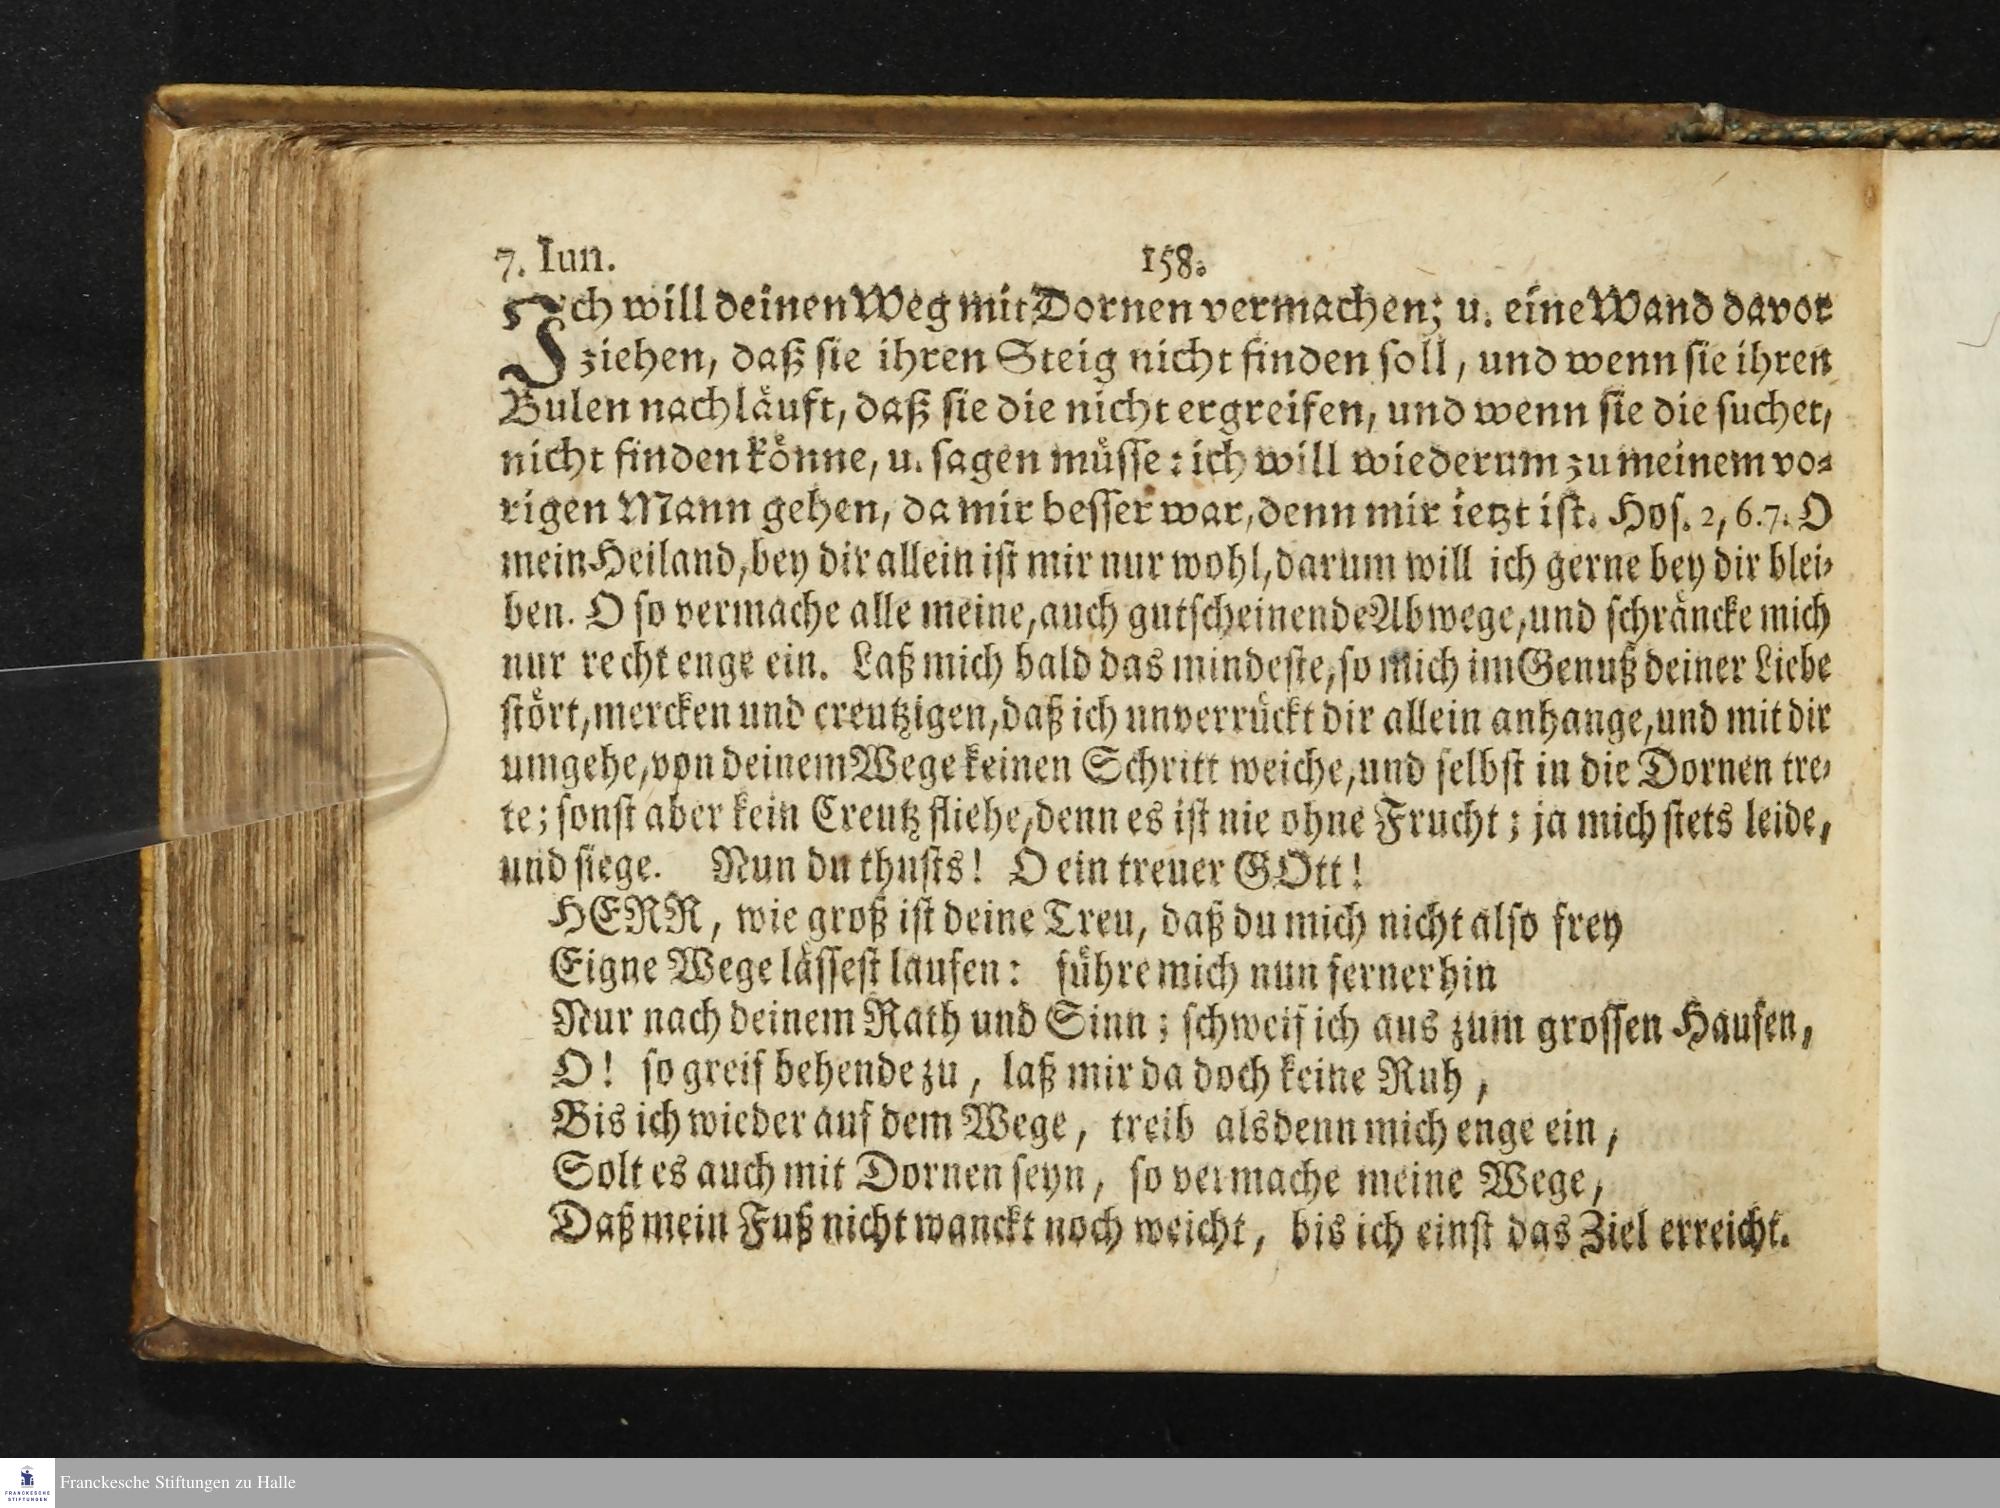 7. Iun.
158.
Ich will deinen Weg mit Dornen vermachen; u. eine Wand davor
ziehen, daß sie ihren Steig nicht finden soll, und wenn sie ihren
Bulen nachläuft, daß sie die nicht ergreifen, und wenn sie die suchet,
nicht finden könne, u. sagen müsse: ich will wiederum zu meinem vo-
rigen Mann gehen, da mir besser war, denn mir ietzt ist. Hos. 2, 6.7. O
mein Heiland, bey dir allein ist mir nur wohl, darum will ich gerne bey dir blei-
ben. O so vermache alle meine, auch gutscheinende Abwege, und schräncke mich
nur recht enge ein. Laß mich bald das mindeste, so mich im Genuß deiner Liebe
stört, mercken und creutzigen, daß ich unverrückt dir allein anhange, und mit dir
umgehe, von deinem Wege keinen Schritt weiche, und selbst in die Dornen tre-
te; sonst aber kein Creutz fliehe, denn es ist nie ohne Frucht; ja mich stets leide,
und siege. Nun du thusts! O ein treuer GOtt!
HERR, wie groß ist deine Treu, daß du mich nicht also frey
Eigne Wege lässest laufen: führe mich nun fernerhin
Nur nach deinem Rath und Sinn; schweif ich aus zum grossen Haufen,
O! so greif behende zu, laß mir da doch keine Ruh,
Bis ich wieder auf dem Wege, treib alsdenn mich enge ein,
Solt es auch mit Dornen seyn, so vermache meine Wege,
Daß mein Fuß nicht wanckt noch weicht, bis ich einst das Ziel erreicht.
FRANCKESCHE
STIFTUNGEN
Franckesche Stiftungen zu Halle